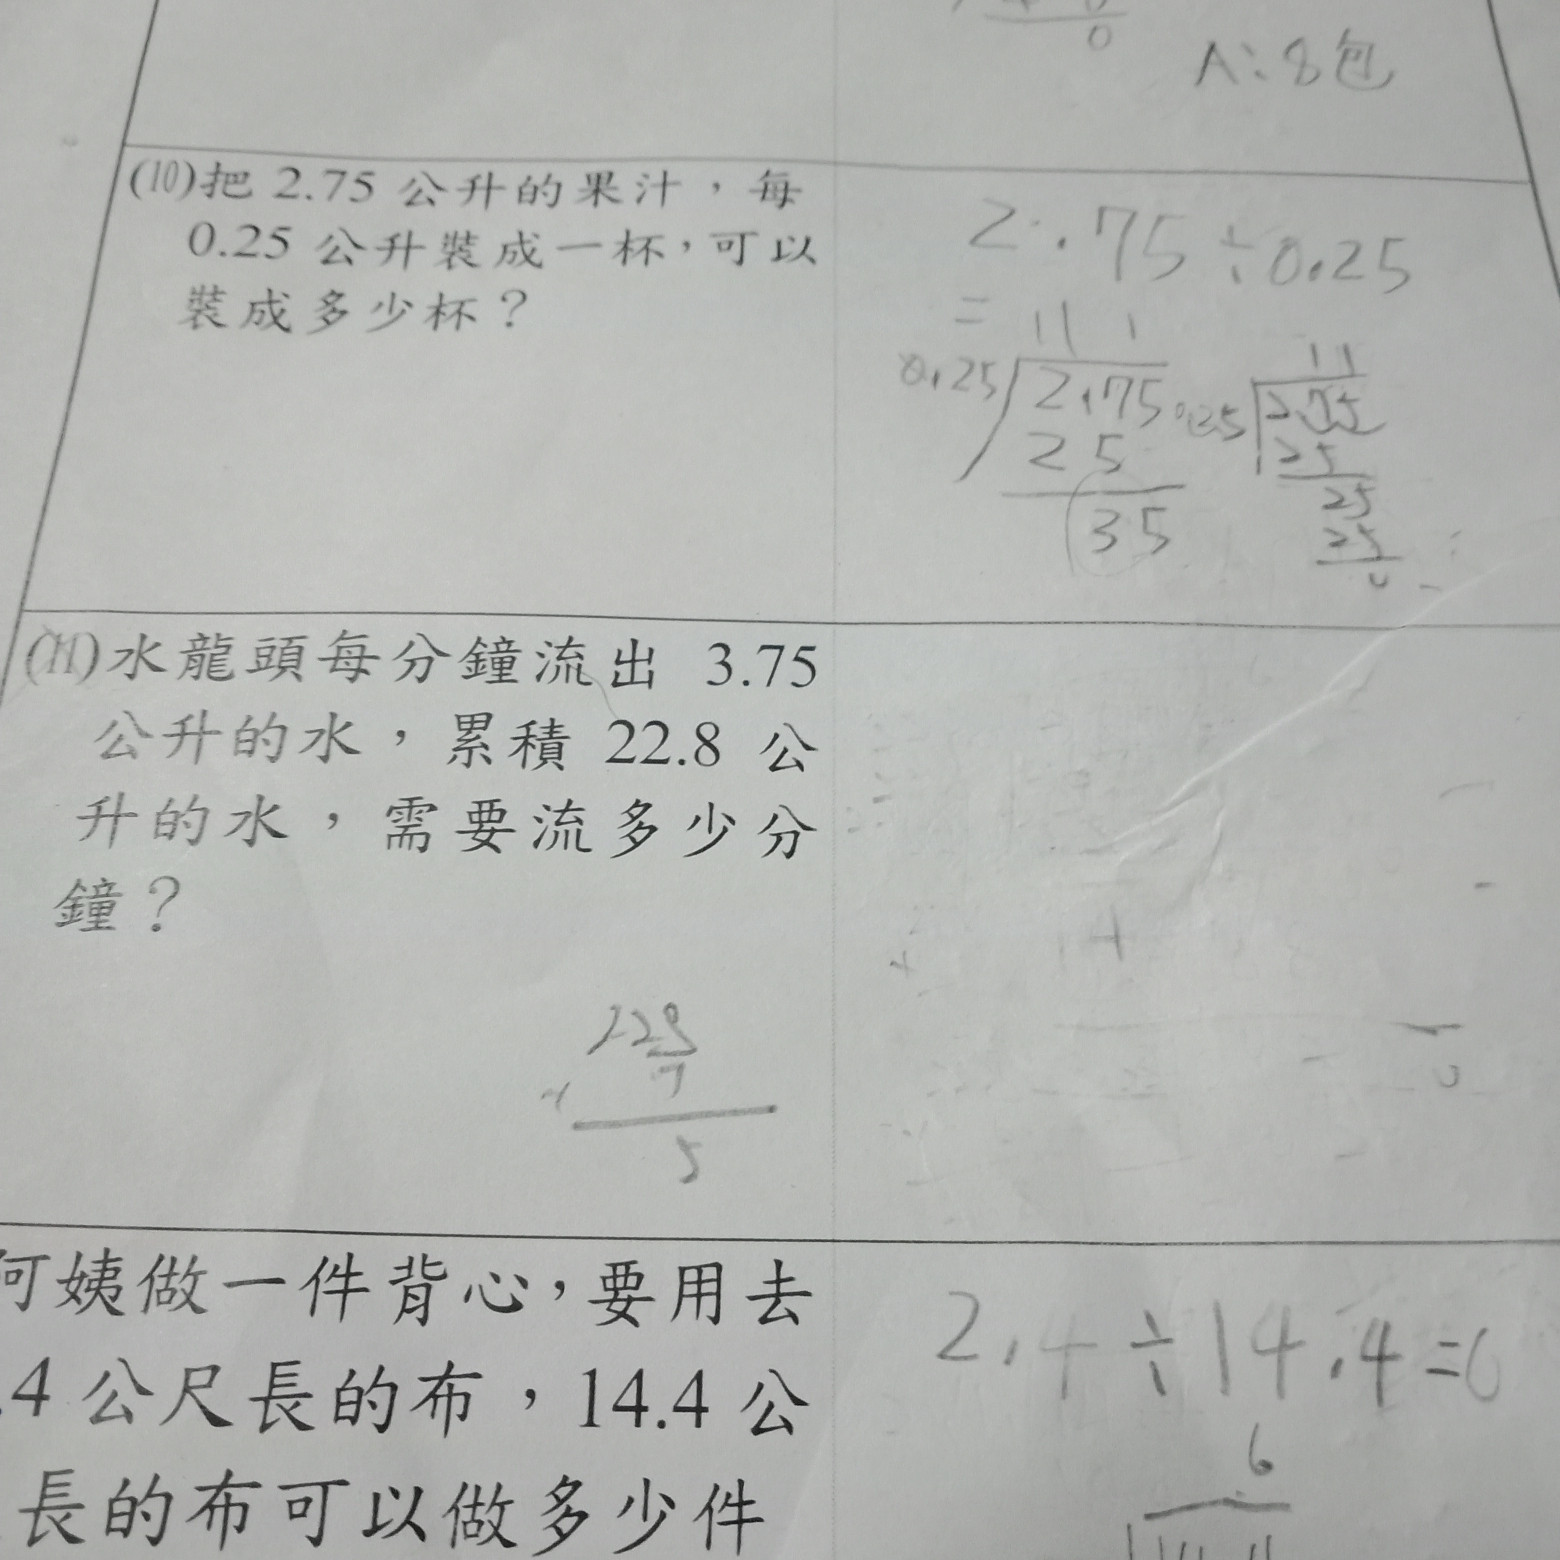 0
A:8包
(10)把 2.75 公升的果汁，每
0.25 公升裝成一杯，可以
裝成多少杯？
2.75÷0.25
=
11 1
0.25 2.75
25
35
11
0.25 2.75
25
25
25
0
(11)水龍頭每分鐘流出 3.75
公升的水，累積 22.8 公
升的水，需要流多少分
鐘？
228
7
5
阿姨做一件背心，要用去
.4 公尺長的布，14.4 公
長的布可以做多少件
2.4÷14.4=6
6